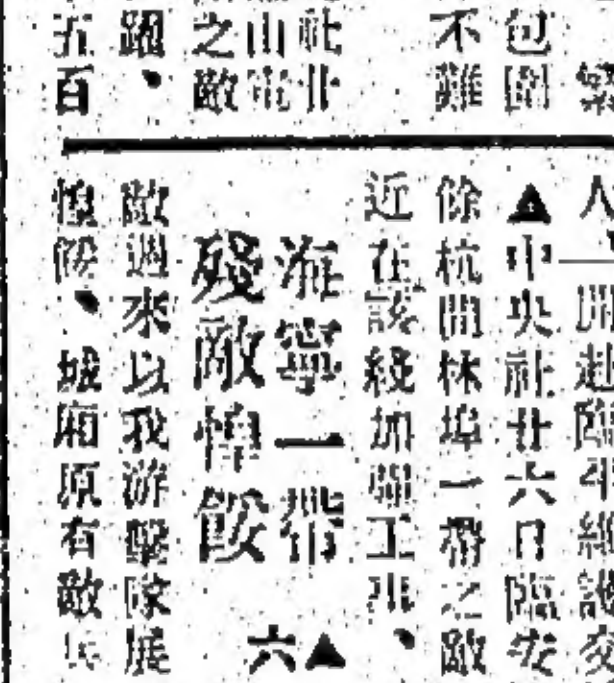 包圍
不難
社廿
山電
之敵
躍、
五百
人、開赴臨平維護交
▲中央社廿六日臨安
餘杭閒林埠一帶之敵
近在該綫加强工事、
海寧一帶▲
殘敵惶餒六
敵過來以我游擊隊展
惶餒、城廂原有敵兵